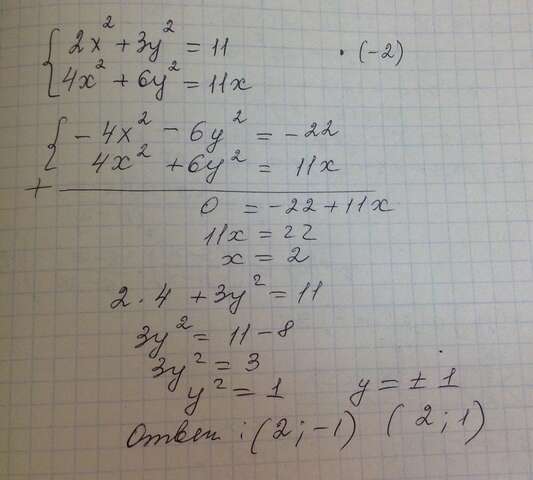 { 2x² + 3y² = 11 · (-2)
4x² + 6y² = 11x
{ -4x² - 6y² = -22
4x² + 6y² = 11x
+
0 = -22 + 11x
11x = 22
x = 2
2 · 4 + 3y² = 11
3y² = 11 - 8
3y² = 3
y² = 1 y = ± 1
Ответ : (2 ; -1) (2 ; 1)